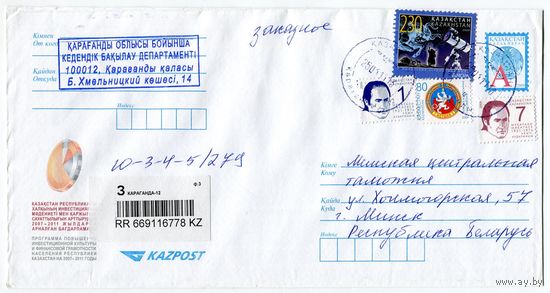 Кімнен
От кого
ҚАРАҒАНДЫ ОБЛЫСЫ БОЙЫНША
КЕДЕНДІК БАҚЫЛАУ ДЕПАРТАМЕНТІ
Қайдан
Откуда
100012, Қарағанды қаласы
Б. Хмельницкий көшесі, 14
Индекс
заказное
230
ҚАЗАҚСТАН
КАЗАХСТАН
1
80
ҚАЗАҚСТАН
А
7
ю-3-4-5/279
З КАРАГАНДА-12
ф.3
RR 669116778 KZ
KAZPOST
ҚАЗАҚСТАН РЕСПУБЛИКАСЫ
ХАЛҚЫНЫҢ ИНВЕСТИЦИЯЛЫҚ
МӘДЕНИЕТІ МЕН ҚАРЖЫ
САУАТТЫЛЫҒЫН АРТТЫРУ
2007-2011 ЖЫЛДАРҒА
АРНАЛҒАН БАҒДАРЛАМА
ПРОГРАММА ПОВЫШЕНИЯ
ИНВЕСТИЦИОННОЙ КУЛЬТУРЫ
И ФИНАНСОВОЙ ГРАМОТНОСТИ
НАСЕЛЕНИЯ РЕСПУБЛИКИ
КАЗАХСТАН НА 2007-2011 ГОДЫ
Кімге
Кому
Минская центральная
таможня
Қайда
Куда
ул. Хоружогорская, 57
г. Минск
Республика Беларусь
Индекс
www.ay.by